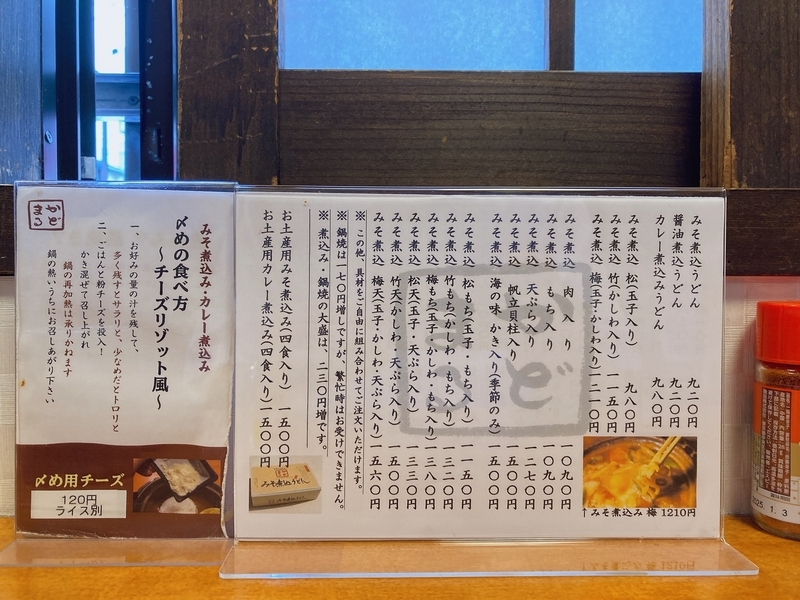 みそ煮込うどん 九二〇円
醤油煮込うどん 九二〇円
カレー煮込みうどん 九八〇円
みそ煮込 松(玉子入り) 九八〇円
みそ煮込 竹(かしわ入り) 一一五〇円
みそ煮込 梅(玉子・かしわ入り) 一二一〇円
みそ煮込 肉入り 一〇九〇円
みそ煮込 もち入り 一〇九〇円
みそ煮込 天ぷら入り 一二七〇円
みそ煮込 帆立貝柱入り 一五〇〇円
みそ煮込 海の味 かき入り(季節のみ) 一五〇〇円
みそ煮込 松もち(玉子・もち入り) 一一五〇円
みそ煮込 竹もち(かしわ・もち入り) 一三二〇円
みそ煮込 梅もち(玉子・かしわ・もち入り) 一三八〇円
みそ煮込 松天(玉子・天ぷら入り) 一三三〇円
みそ煮込 竹天(かしわ・天ぷら入り) 一五〇〇円
みそ煮込 梅天(玉子・かしわ・天ぷら入り) 一五六〇円
※この他、具材をご自由に組み合わせてご注文いただけます。
※鍋焼は一七〇円増しですが、繁忙時はお受けできません。
※煮込み・鍋焼の大盛は、二三〇円増です。
お土産用みそ煮込み(四食入り) 一五〇〇円
お土産用カレー煮込み(四食入り) 一五〇〇円
みそ煮込うどん
↑みそ煮込み 梅 1210円
かど
まる
みそ煮込み・カレー煮込み
〆の食べ方
〜チーズリゾット風〜
一、お好みの量の汁を残して、
多く残すとサラリと、少なめだとトロリと
二、ごはんと粉チーズを投入!
かき混ぜて召し上がれ
鍋の再加熱は承りかねます
鍋の熱いうちにお召しあがり下さい
〆め用チーズ
120円
ライス別